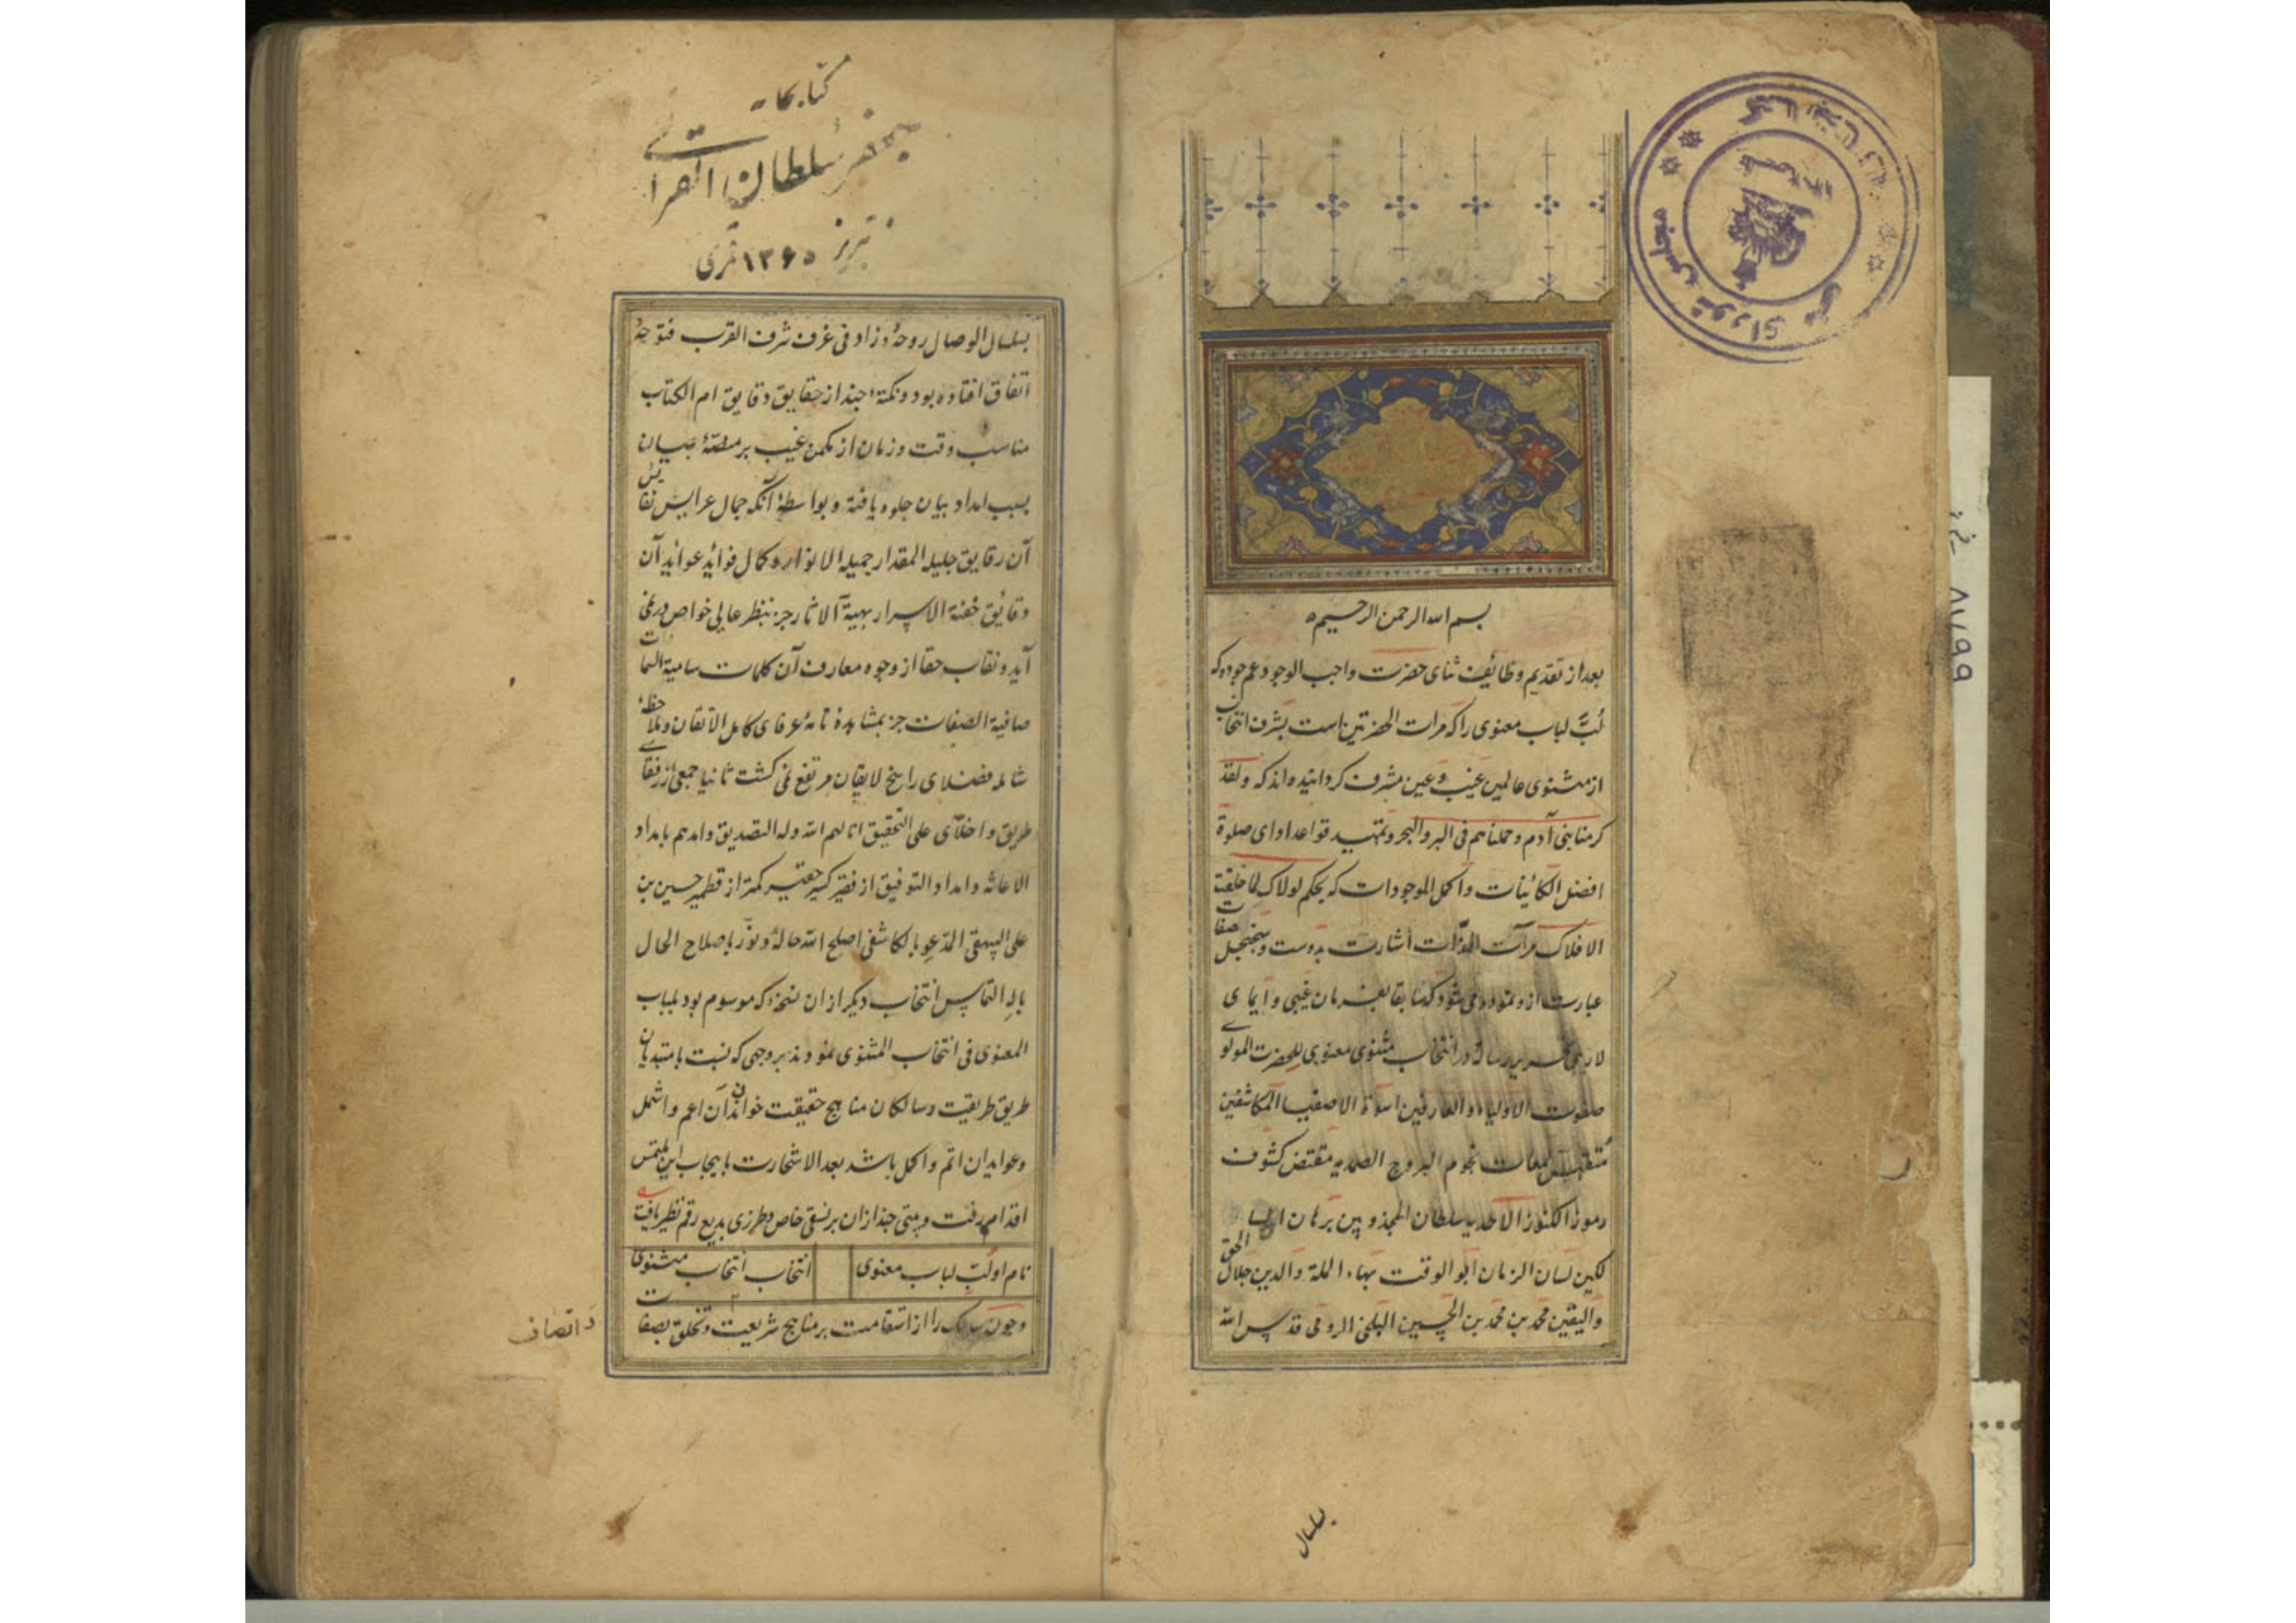 بسم الله الرحمن الرحیم
بعد از تقدیم وظائف ثنای حضرت واجب الوجود عم جوده که
لُبّ لباب معنوی را که مرات الحضرتین است بشرف انتخاب
از مثنوی عالمین غیب و عین مشرف کردانیده اند که ولقد
کرمنا بنی آدم و حملناهم فی البر والبحر و تمهید قواعد ادای صلوة
افضل الکائینات و اکمل الموجودات که بحکم لولاک لما خلقت
الافلاک مرآت الذّات اشارت بدوست و سجنجل صفات
عبارت ازو نموده می شود که سابقا بفرمان غیبی و ایمای
لاریبی رساله در انتخاب مثنوی معنوی للحضرت المولوی
صفوت الاولیاء و العارفین اسوة الاصفیا المکاشفین
مقتبس لمعات نجوم البروج الصمدیه مقتض کشوف
رموز الکنوز الاحدیه سلطان المجذوبین برهان
لکین لسان الزمان ابو الوقت بهاء الملة والدین جلال الحق
والیقین محمد بن محمد بن الحسین البلخی الرومی قدس الله
بسلسال
کتابخانه
جعفر سلطان القرائی
تبریز ۱۳۶۵ قمری
بسلسال الوصال روحهُ وزاد فی غرف شرف القرب فتوحهُ
اتفاق افتاده بود و نکتهٔ چند از حقایق دقایق ام الکتاب
مناسب وقت و زمان از مکمن غیب بر منصّهٔ بیان
بسبب امداد بیان جلوه یافته و بواسطهٔ آنکه جمال عرایس نفایس
آن رقایق جلیله المقدار جمیله الانوار و کمال فوائد عواید آن
دقائق خفیة الاسرار بهیة الاثار جز بنظر عالی خواص در نمی
آید و نقاب خفا از وجوه معارف آن کلمات سامیة السمات
صافیة الصفات جز بمشاهدهٔ تامهٔ عرفای کامل الاتقان و ملاحظهٔ
شامله فضلای راسخ لایقان مرتفع نمی کشت ثانیا جمعی از رفقای
طریق و اخلّای علی التحقیق انالهم الله وله التصدیق وامدهم بامداد
الاعانه و امداد التوفیق از فقیر کسیر حقیر کمتر از قطمیر حسین بن
علی البیهقی المدّعو بالکاشفی اصلح الله حالهُ ونوّر باصلاح الحال
باله التماس انتخاب دیکر از ان نسخه که موسوم بود بلباب
المعنوی فی انتخاب المثنوی نمودند بر وجهی که نسبت با مبتدیان
طریق طریقت و سالکان مناهج حقیقت خواندن آن اعم و اشمل
وعواید ان اتم و اکمل باشد بعد الاستخارت بایجاب این ملتمس
اقدام رفت و بیتی چند ازان بر نسقی خاص و طرزی بدیع رقم نظیر یافت
نام او لُبّ لباب معنوی انتخاب انتخاب مثنوی
و چون سالک را از استقامت بر مناهج شریعت و تخلق بصفات
و اتصاف
۸۷۱۹۹